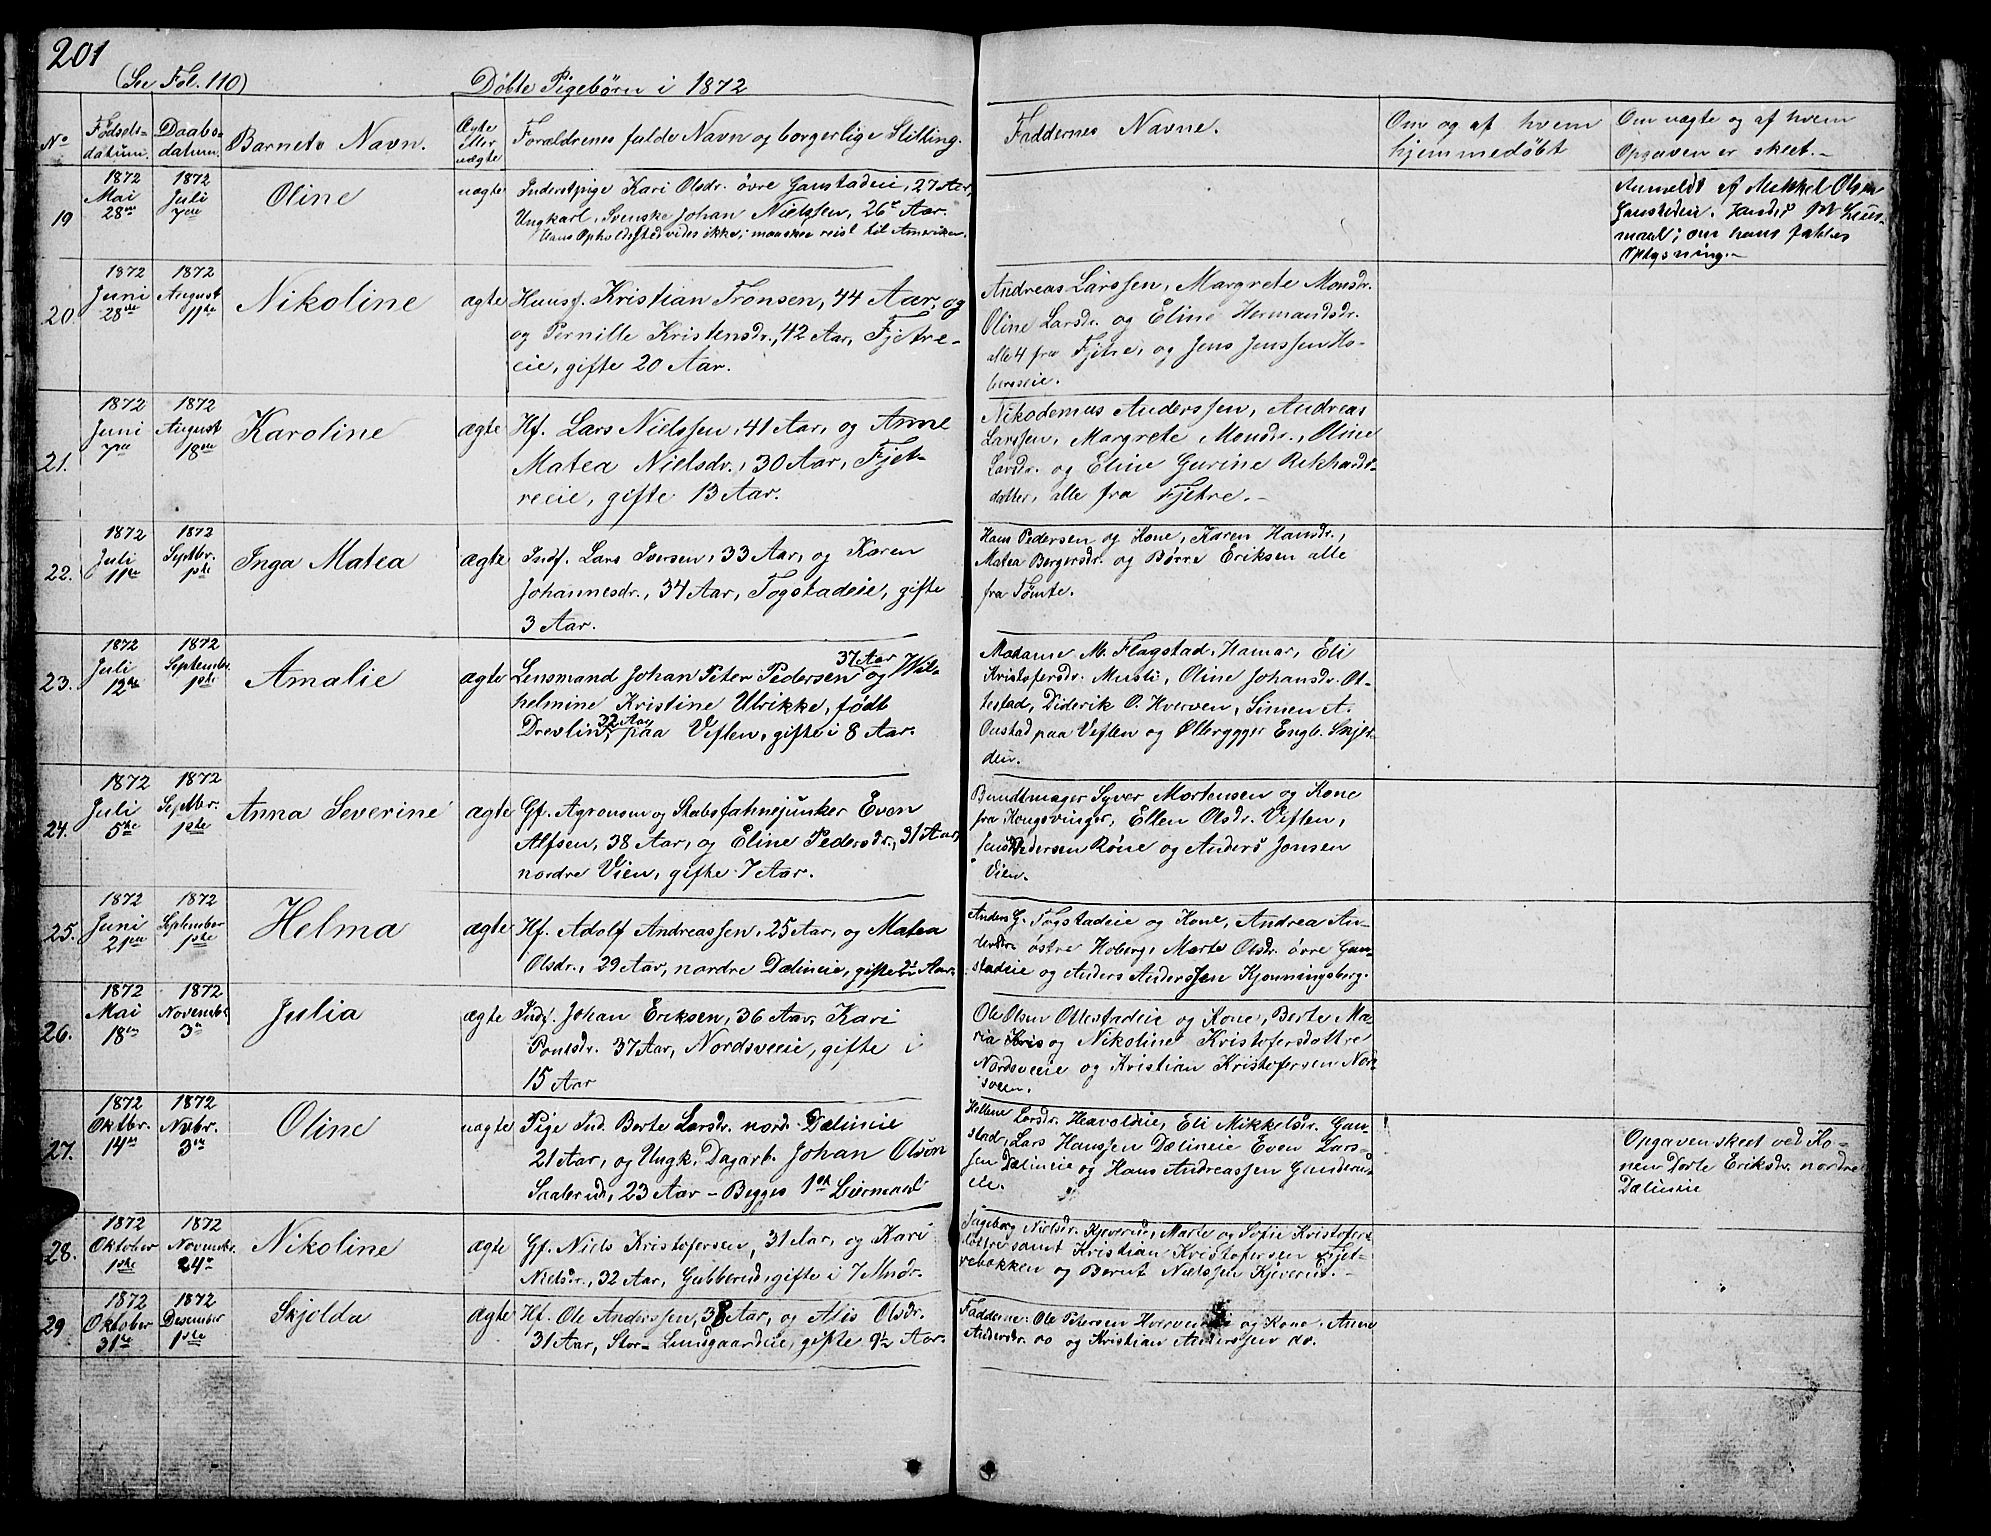 201
(See Fol. 110)
Døbte Pigebørn i 1872
No
Fødsels-
datum.
Daabs-
datum.
Barnets Navn.
Ægte
eller
uægte
Forældrenes fulde Navn og borgerlige Stilling.
Faddernes Navne.
Om og af hvem
hjemmedøbt
Om uægte og af hvem
Opgaven er skeet.-
19
1872
Mai
28de
1872
Juli
7de
Oline
uægte
Inderstpige Kari Olsdr. øvre Gaustadeie, 27 Aar,
Ungkarl, Svenske Johan Nielssen, 26 Aar.
Hans Opholdssted vides ikke; maaskee reist til Amerika.
Anmeldt af Mikkel Olsen
Gaustadeie.
maal; om hans fattes
Oplysning.-
20.
1872
Juni
28de
1872
August
11te
Nikoline
ægte
Huusf. Kristian Tronsen, 44 Aar, og
og Pernille Kristensdr., 42 Aar, Fjetre-
eie, gifte 20 Aar.
Andreas Larssen, Margrete Monsdr.
Oline Larsdr. og Eline Hermandsdr.
alle 4 fra Fjetre, og Jens Jenssen Ho-
bergseie.
21.
1872
Juni
7de
1872
August
18de
Karoline
ægte
Hf. Lars Nielssen, 41 Aar, og Anne
Matea Nielsdr., 30 Aar, Fjet-
reeie, gifte 13 Aar.
Nikodemus Anderssen, Andreas
Larssen, Margrete Monsdr., Oline
Larsdr. og Eline Gurine Rikhards-
datter, alle fra Fjetre.-
22.
1872
Juli
11te
1872
Septbr.
1ste
Inga Matea
ægte
Indf. Lars Iversen, 33 Aar, og Karen
Johannesdr., 34 Aar, Togstadeie, gifte
3 Aar.
Hans Pedersen og Kone, Karen Hansdr.,
Matea Bergersdr. og Børre Eriksen alle
fra Tømte.
23.
1872
Juli
12te
1872
Septembr.
1ste
Amalie
ægte
Lensmand Johan Peter Pedersen 37 Aar og Wil-
helmine Kristine Ulrikke, født
Drevlin, 32 Aar, paa Veflen, gifte i 8 Aar.
Madame M. Flagstad, Hamar, Eli
Kristofersdr. Musli, Oline Johansdr. Ot-
testad, Diderik O. Hverven, Simen A.
Onstad paa Veflen og Ølbrygger Engb. Skjet-
den.
24.
1872
Juli
5te
1872
Septbr.
1ste
Anna Severine
ægte
Gf. Agronom og Stabsfahnejunker Even
Alfsen, 38 Aar, og Eline Pedersdr., 31 Aar,
nordre Vien, gifte 7 Aar.
Bundtmager Syver Mortensen og Kone
fra Kongsvinger, Ellen Olsdr. Veflen,
Jens Pedersen Røne og Anders Jonsen
Vien.
25.
1872
Juni
21de
1872
September
1ste
Helma
ægte
Hf. Adolf Andreassen, 25 Aar, og Matea
Olsdr., 29 Aar, nordre Dælineie, gifte 2½ Aar.
Anders G. Togstadeie og Kone, Andrea An-
dersdr. østre Hoberg, Marte Olsdr. øvre Gau-
stadeie og Anders Anderssen Kjonningsberg.
26.
1872
Mai
18de
1872
November
3de
Julia
ægte
Indf. Johan Eriksen, 36 Aar, Kari
Poulsdr. 37 Aar, Nordsveeie, gifte i
15 Aar
Ole Olsen Ottestadeie og Kone, Berte Ma-
ria Kris og Nikoline Kristofersdøttre
Nordsveeie og Kristian Kristofersen Nor-
sveen.
27.
1872
Oktbr.
14de
1872
Nvbr.
3de
Oline
uægte
Pige Ind. Berte Larsdr. nord. Dælineie
21 Aar, og Ungk. Dagarb. Johan Olsøn
Saalerud, 23 Aar - Begges 1ste Leiermaal
Hellene Larsdr. Heavoldeie, Eli Mikkelsdr. Gau-
stad, Lars Hanssen Dælineie Even Lars-
sen Dælineie og Hans Andreassen Gunderud-
eie.
Opgaven skeet ved Ko-
nen Dorte Eriksdr. nordre
Dælineie
28.
1872
Oktober
1ste
1872
Novembr.
24de
Nikoline
ægte
Gf. Niels Kristofersen, 31 Aar, og Kari
Nielsdr., 32 Aar, Gubberud, gifte i 7 Mndr.
Ingeborg Nielsdr. Kjeverud, Marte og Sofie Kristofers-
døttre samt Kristian Kristofersen Fjet-
rebakken og Bernt Nielssen Kjeverud.-
29
1872
Oktober
31te
1872
Desember
1ste
Skjolda
ægte
Hf. Ole Anderssen, 38 Aar, og Alis Olsdr.
31 Aar, Stor- Lundgaardeie, gifte 9½ Aar.
Fadderne: Ole Petersen Hverveneie og Kone, Anne
Andersdr. do og Kristian Anderssen do.